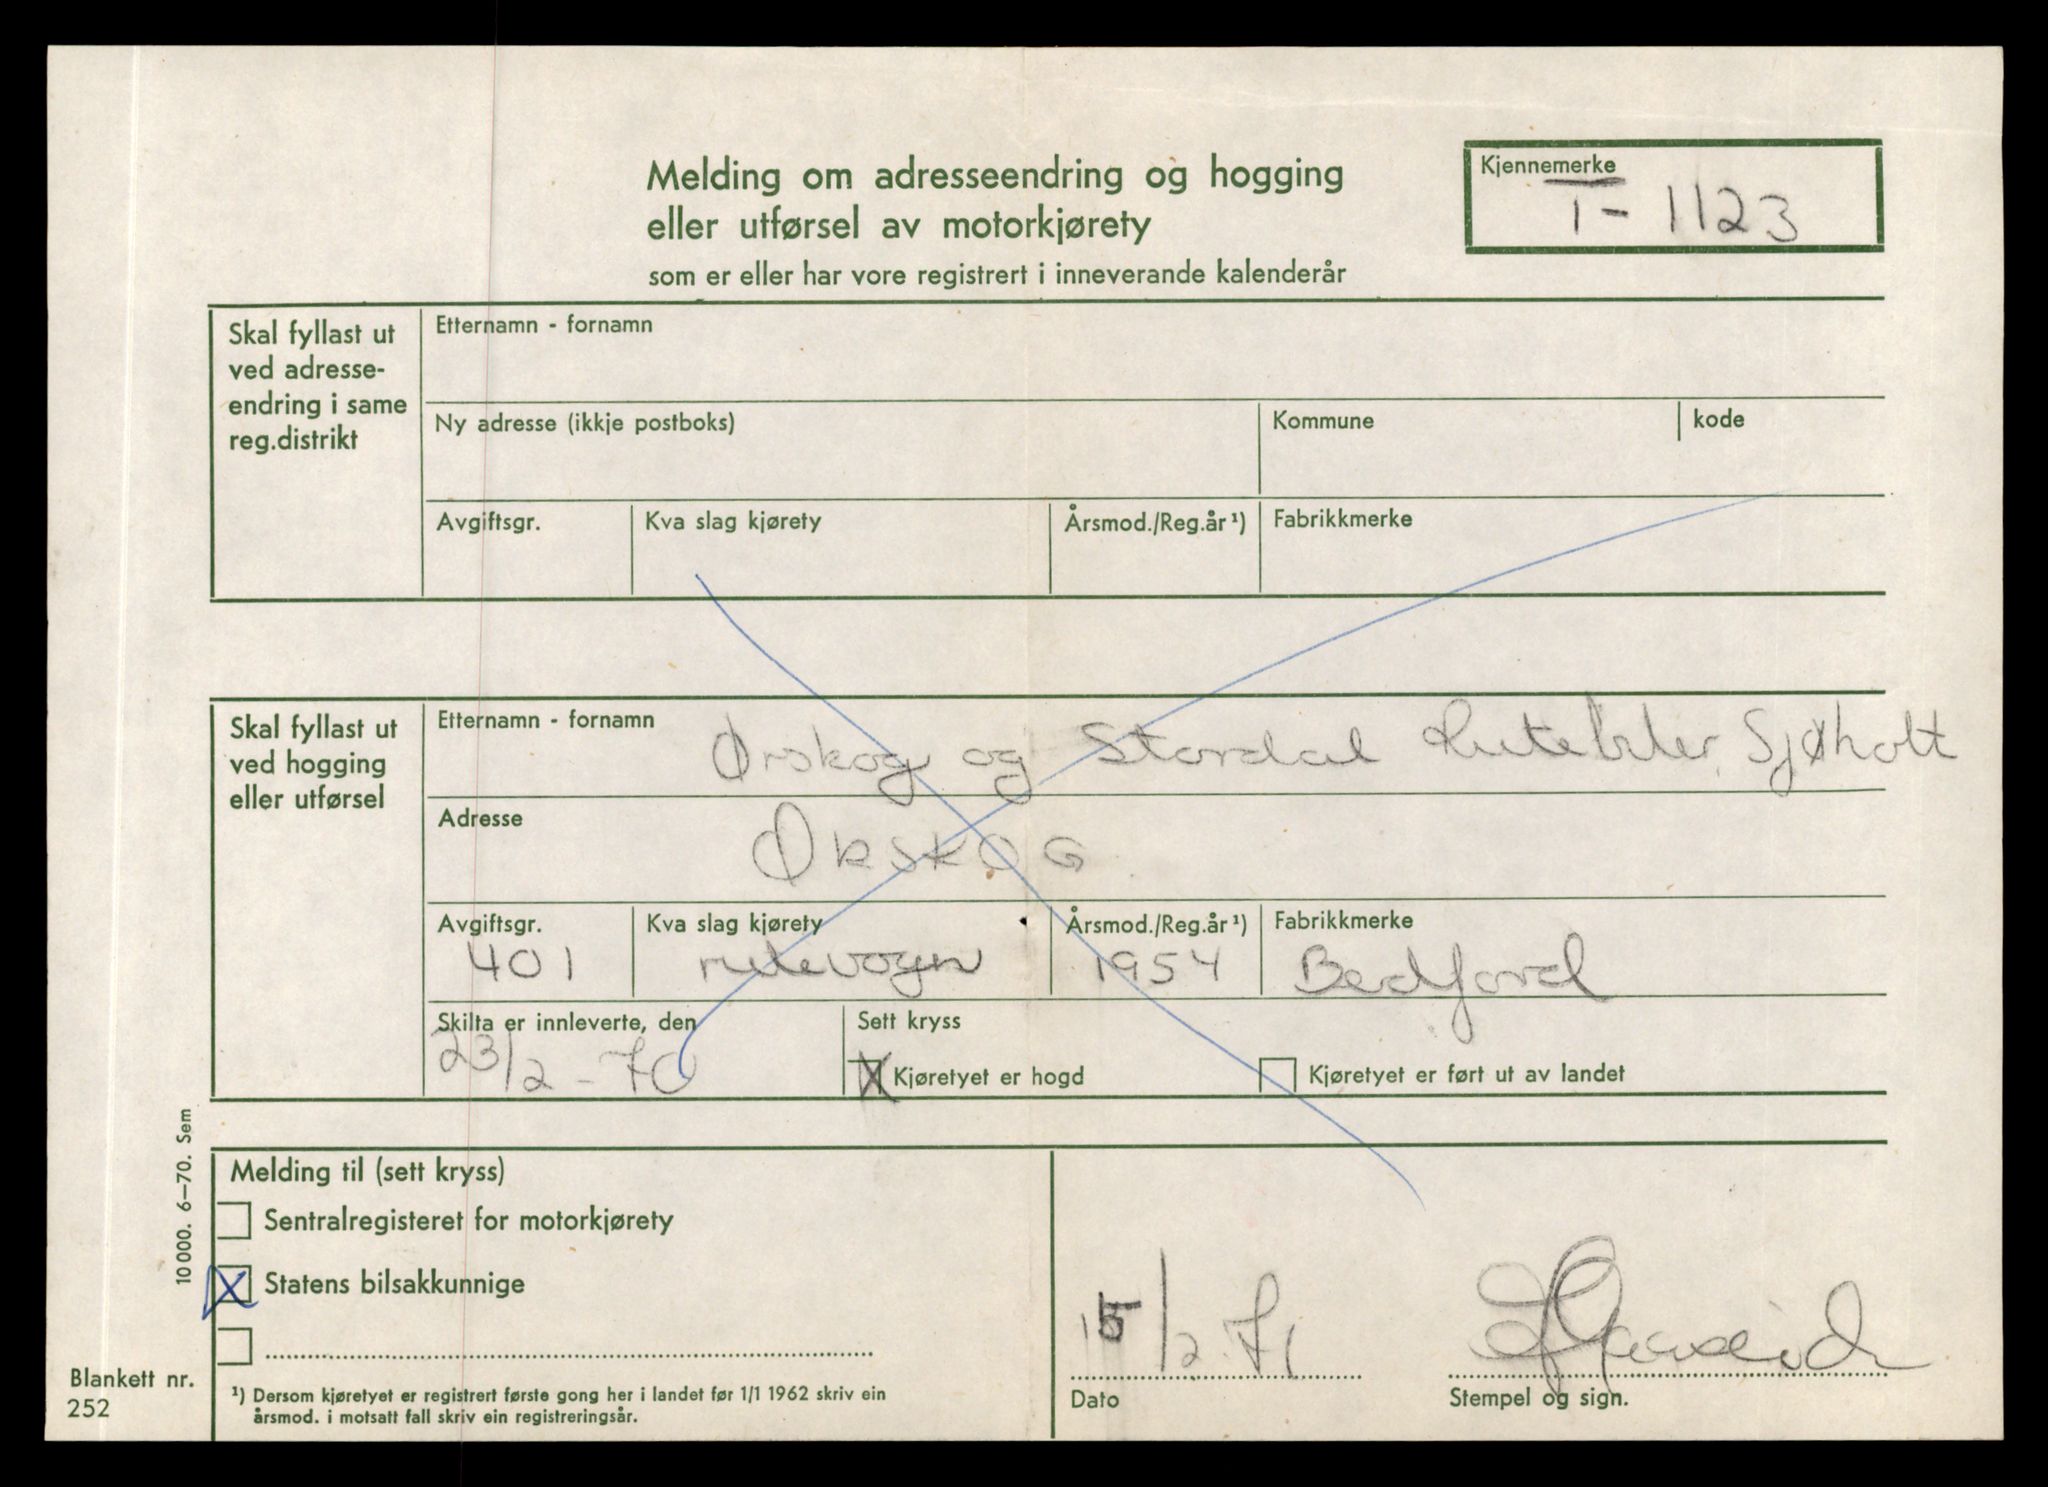 Melding om adresseendring og hogging
eller utførsel av motorkjørety
som er eller har vore registrert i inneverande kalenderår
Kjennemerke
T-1123
Skal fyllast ut
ved adresse-
endring i same
reg.distrikt
Etternamn - fornamn
Ny adresse (ikkje postboks)
Kommune
kode
Avgiftsgr.
Kva slag kjørety
Årsmod./Reg.år ¹)
Fabrikkmerke
Skal fyllast ut
ved hogging
eller utførsel
Etternamn - fornamn
Ørskog og Stordal Rutebiler, Sjøholt
Adresse
ØRSKOG
Avgiftsgr.
401
Kva slag kjørety
rutevogn
Årsmod./Reg.år ¹)
1954
Fabrikkmerke
Bedford
Skilta er innleverte, den
23/2-70
Sett kryss
X Kjøretyet er hogd
Kjøretyet er ført ut av landet
Melding til (sett kryss)
Sentralregisteret for motorkjørety
X Statens bilsakkunnige
¹) Dersom kjøretyet er registrert første gong her i landet før 1/1 1962 skriv ein
årsmod. i motsatt fall skriv ein registreringsår.
15/2-71
Dato
Stempel og sign.
10000. 6-70. Sem
Blankett nr.
252